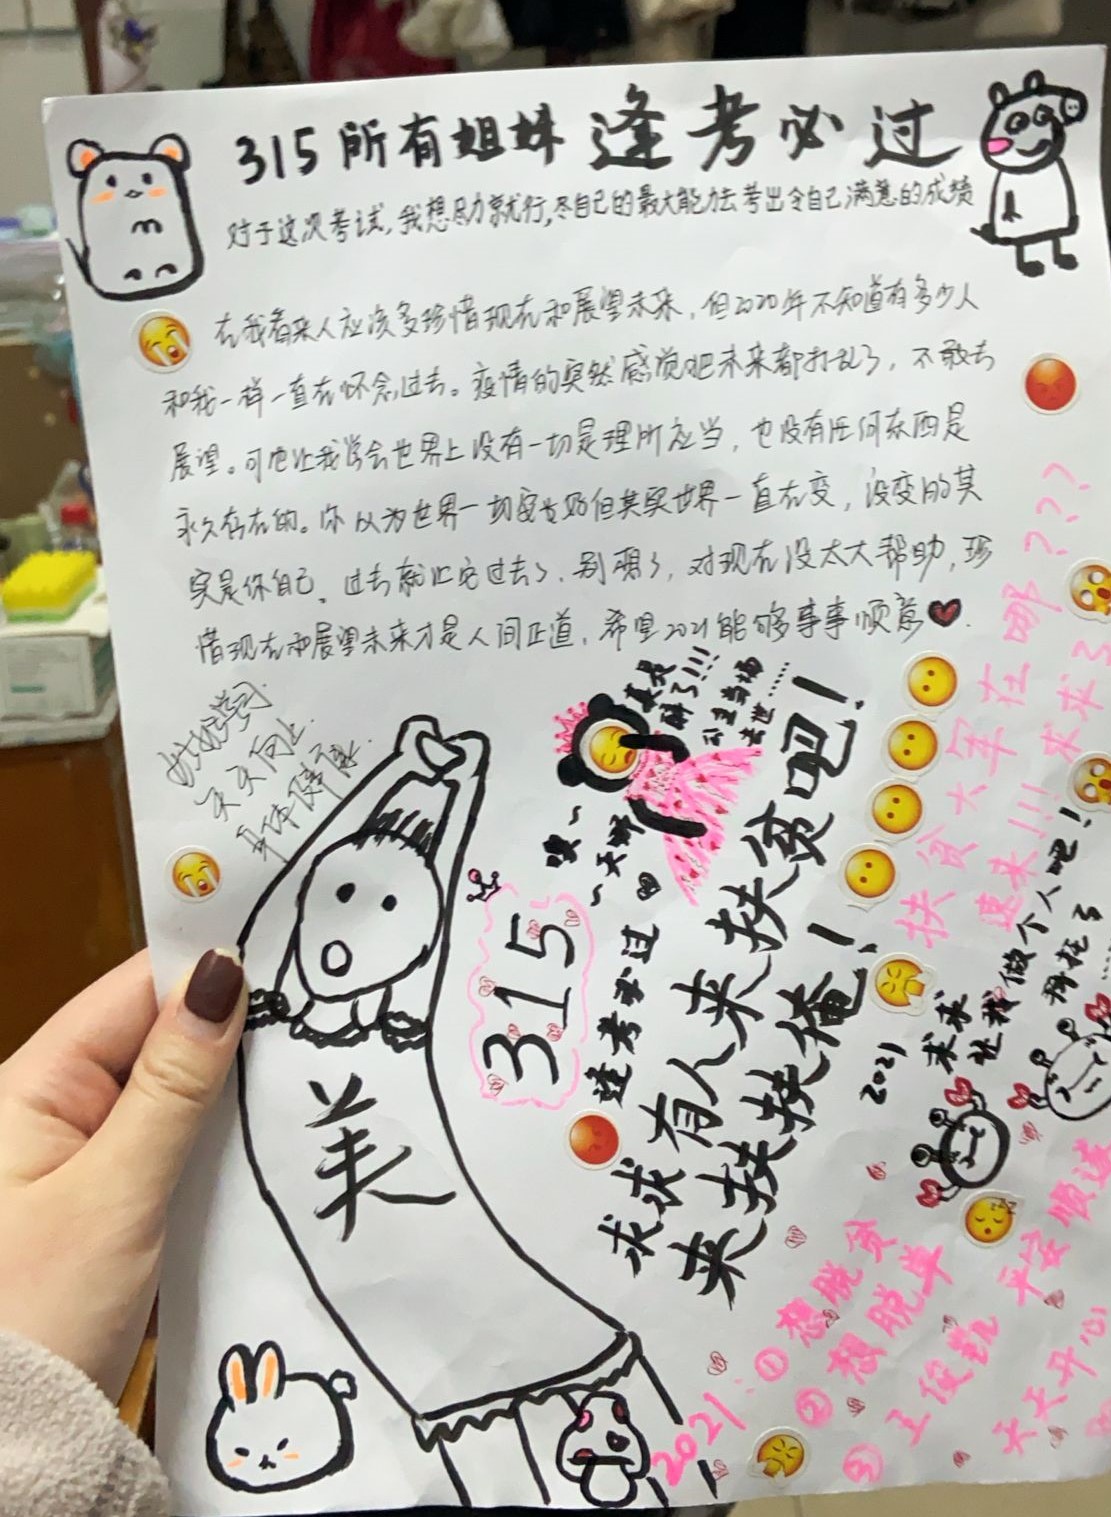 315所有姐妹逢考必过
对于这次考试,我想尽力就行,尽自己的最大能力去考出令自己满意的成绩
在我看来人应该多珍惜现在和展望未来,但2020年不知道有多少人
和我一样一直在怀念过去。疫情的突然感觉把未来都打乱了,不敢去
展望。可也让我学会世界上没有一切是理所应当,也没有任何东西是
永久存在的。你以为世界一切安好但其实世界一直在变,没变的其
实是你自己。过去就让它过去了,别想了,对现在没太大帮助,珍
惜现在和展望未来才是人间正道,希望2021能够事事顺意
好好学习
天天向上
身体健康
真是
醉了!!!
公主当场
去世……
天哪
315
逢考必过
求求有人来扶贫吧!
来扶扶俺!
扶贫大军在哪???
速来!!!求求了
2021
求求
让我做个人吧!
拜托了……
美
2021:①想脱贫
②想脱单
③王俊凯
平安顺遂
天天开心